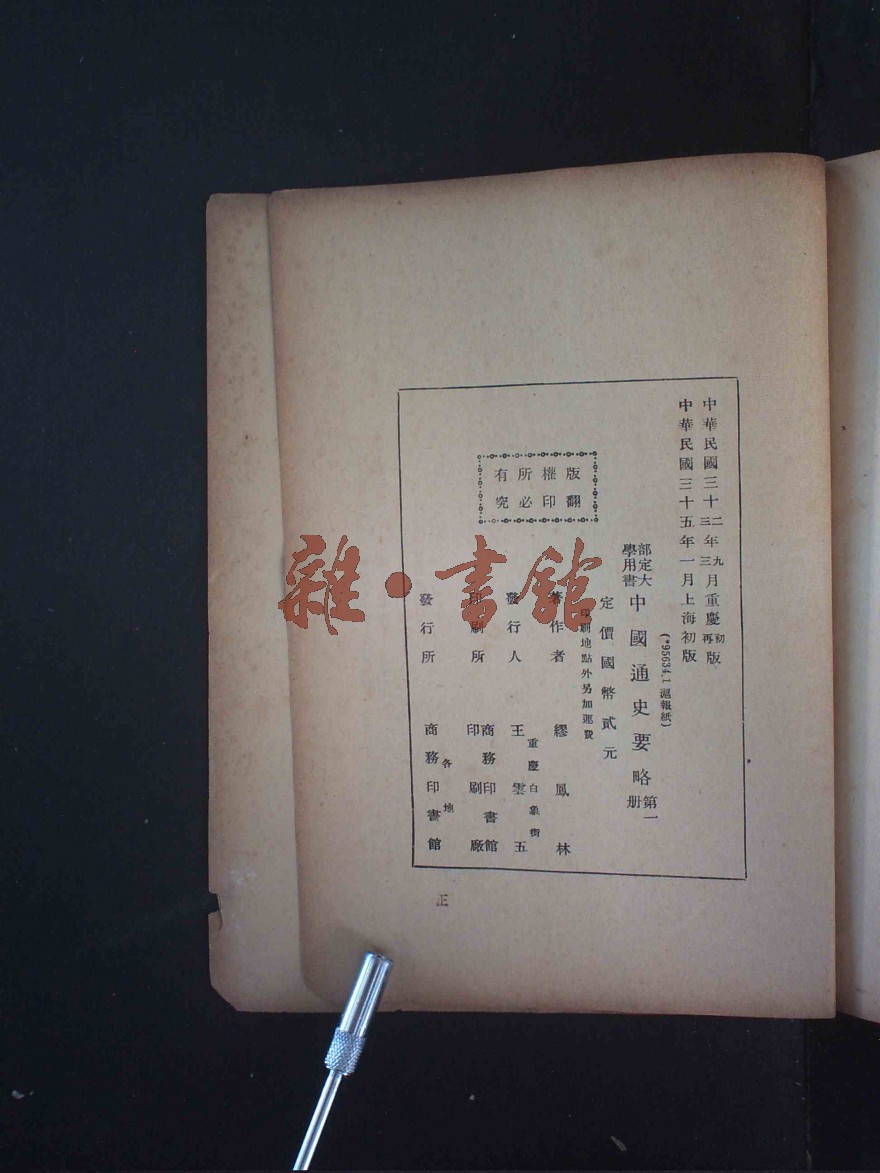 中華民國三十二三年九三月重慶初再版
中華民國三十五年一月上海初版
(*95634.1 滬報紙)
部定大
學用書
中國通史要略
第一
册
定價國幣貳元
印刷地點外另加運費
版權所有
翻印必究
著作者 繆鳳林
重慶白象街
發行人 王雲五
印刷所 商務印書館
印刷廠
各地
發行所 商務印書館
正
雜·書館